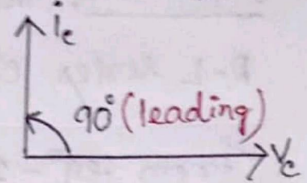 i_c
90° (leading)
V_c